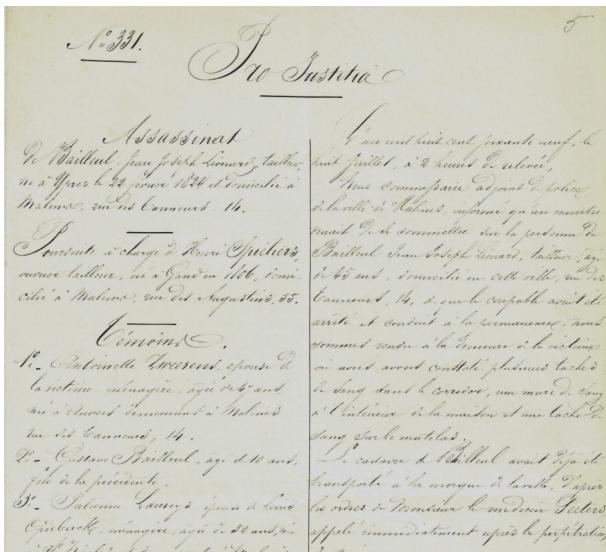 5
N° 331.
Pro Justitia
Assassinat
de Bailleul, Jean Joseph Léonard, tailleur,
né à Ypres le 22 février 1824 et domicilié à
Malines, rue des Tanneurs 14.
Poursuite à charge de Henri
ouvrier tailleur, né à Gand en 1806, domi-
cilié à Malines, rue des Augustins, 55.
Témoins.
1°- Antoinette épouse de
la victime, ménagère, âgée de ans,
née à Anvers demeurant à Malines
rue des Tanneurs, 14.
2°- Gustave Bailleul, âgé d 10 ans,
fils de la précédente.
3°- épouse de
ménagère, âgée de 32 ans, née
L'an mil huit cent soixante neuf, le
huit juillet, à 2 heures de relevée,
Nous commissaire adjoint de police
de la ville de Malines, informé qu'un meurtre
venait de se commettre sur la personne de
Bailleul Jean Joseph Léonard, tailleur, âgé
de 45 ans, domicilié en cette ville, rue des
Tanneurs, 14, & que le coupable avait été
arrêté et conduit à la permanence, nous
sommes rendu à la demeure de la victime
où nous avons constaté plusieurs taches
de sang dans le corridor, une mare de sang
à l'intérieur de la maison et une tache de
sang sur le matelas.
Le cadavre de Bailleul avait déjà été
transporté à la morgue de la ville, d'après
les ordres de Monsieur le médecin
appelé immédiatement après la perpétration